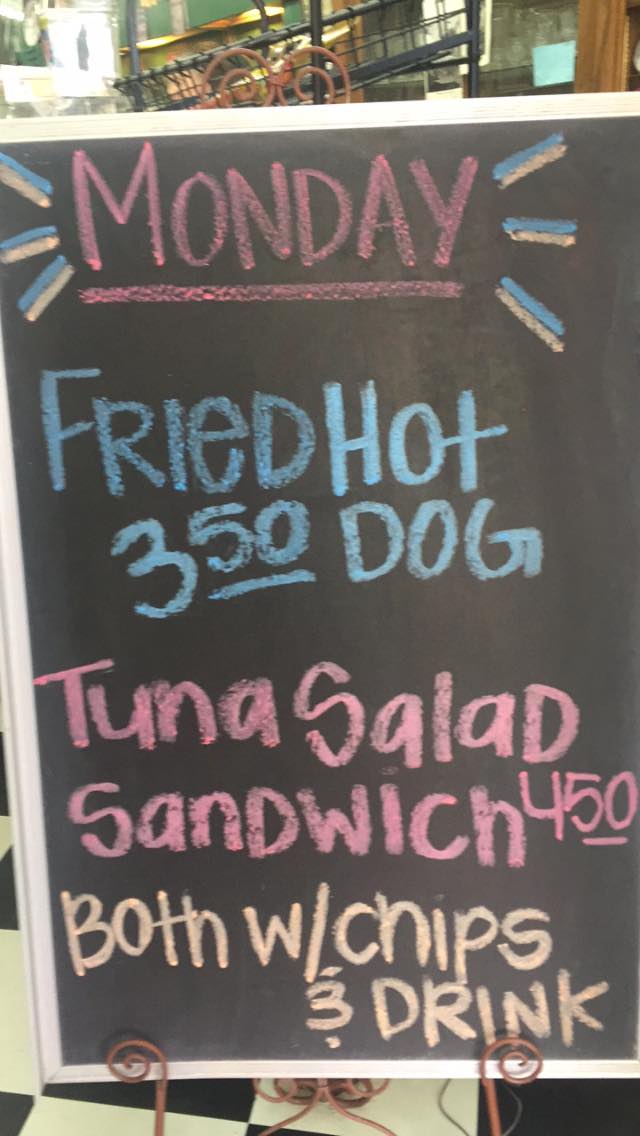 MONDAY
FRIED HOt
3 50 DOG
Tuna Salad
Sandwich 450
Both w/chips
& DRINK